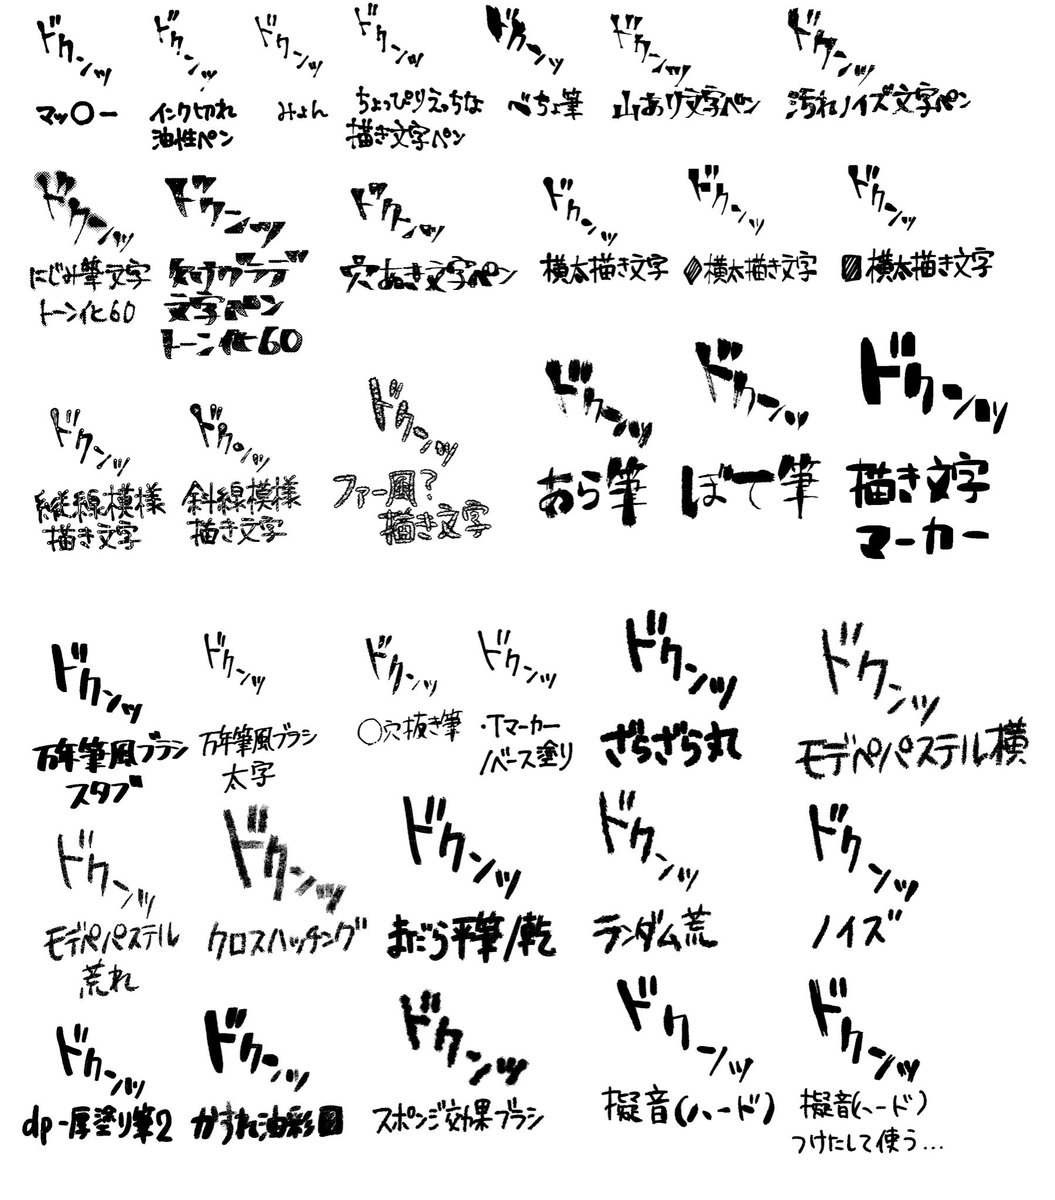 ドクンッ
マッ○ー
ドクンッ
インク切れ
油性ペン
ドクンッ
みょん
ドクンッ
ちょっぴりえっちな
描き文字ペン
ドクンッ
べちょ筆
ドクンッ
山あり文字ペン
ドクンッ
汚れノイズ文字ペン
ドクンッ
にじみ筆文字
トーン化60
ドクンッ
文字ペン
トーン化60
ドクンッ
穴あき文字ペン
ドクンッ
横太描き文字
ドクンッ
横太描き文字
ドクンッ
横太描き文字
ドクンッ
縦線模様
描き文字
ドクンッ
斜線模様
描き文字
ドクンッ
ファー風?
描き文字
ドクンッ
あら筆
ドクンッ
ぼて筆
ドクンッ
描き文字
マーカー
ドクンッ
万年筆風ブラシ
スタブ
ドクンッ
万年筆風ブラシ
太字
ドクンッ
○穴抜き筆
ドクンッ
・Tマーカー
/ベース塗り
ドクンッ
ざらざら丸
ドクンッ
モデペパステル横
ドクンッ
モデペパステル
荒れ
ドクンッ
クロスハッチング
ドクンッ
まだら平筆/乾
ドクンッ
ランダム荒
ドクンッ
ノイズ
ドクンッ
dp-厚塗り筆2
ドクンッ
かすれ油彩
ドクンッ
スポンジ効果ブラシ
ドクンッ
擬音(ハード)
ドクンッ
擬音(ハード)
つけたして使う…